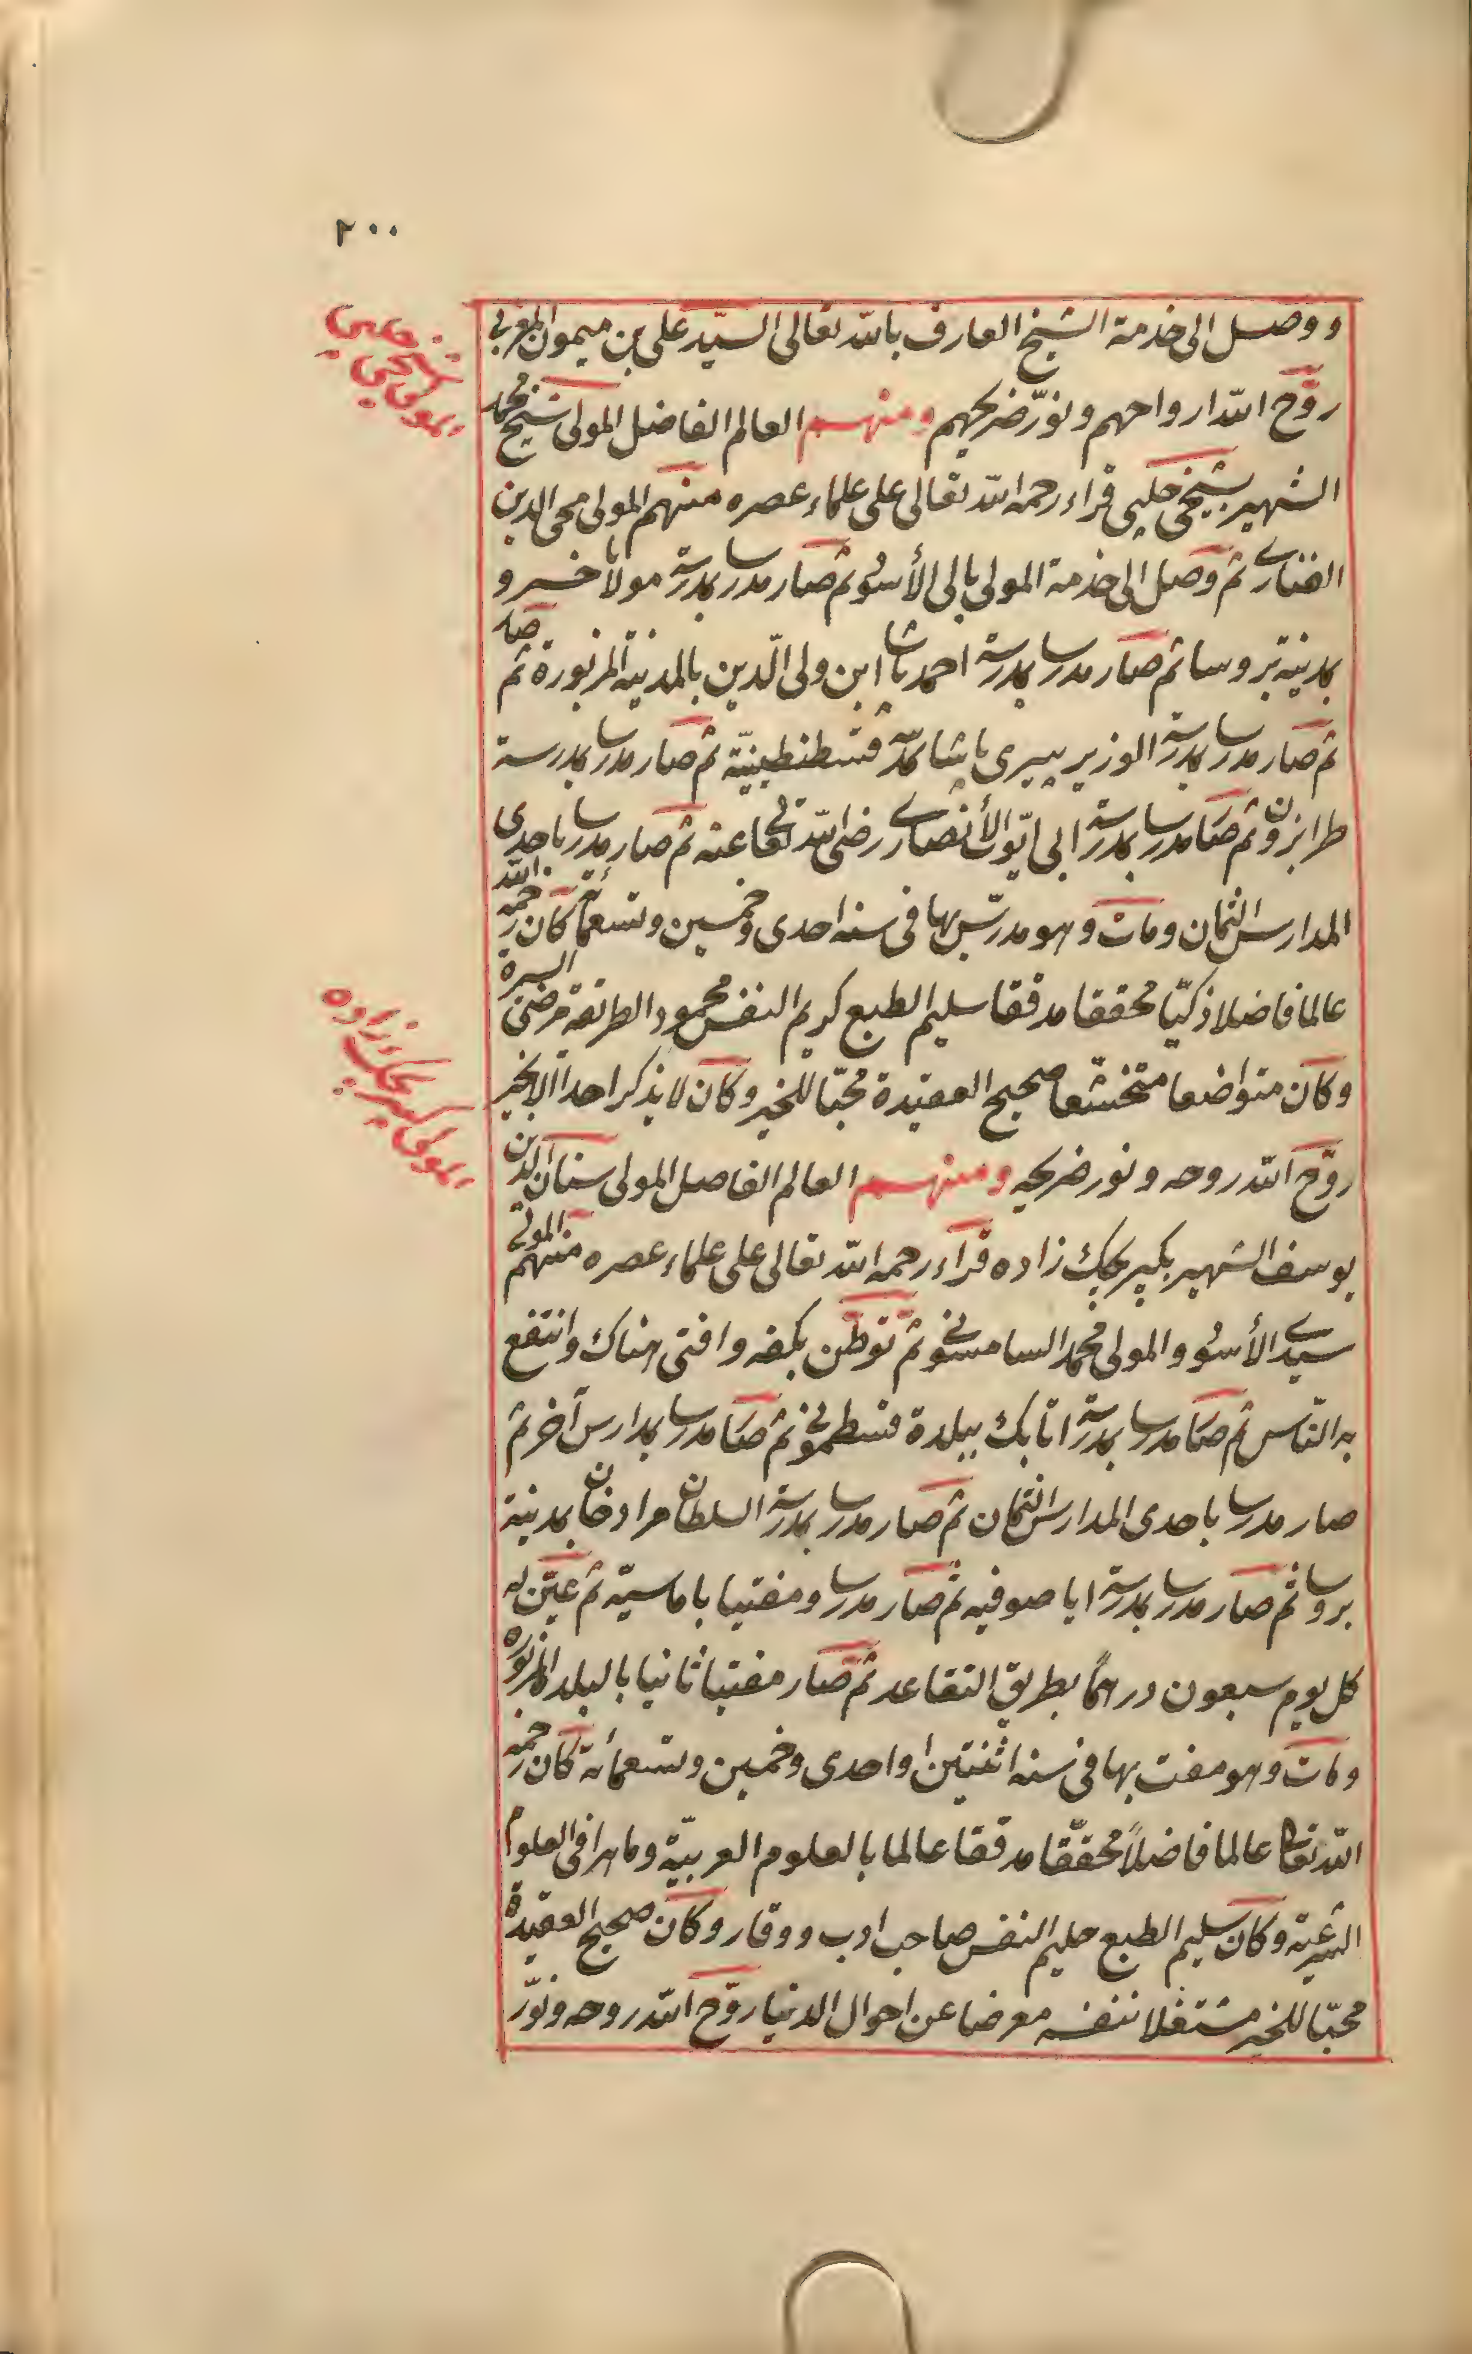 ٢٠٠
و وصل الى خدمة الشيخ العارف بالله تعالى السيّد على بن ميمون المغربى
روّح الله ارواحهم ونوّر ضريحهم ومنهم العالم الفاضل المولى شيخ محمد
الشهير بشيخى چلبى قراء رحمه الله تعالى على علماء عصره منهم المولى محى الدين
الفنارى ثم وصل الى خدمة المولى بالى الأسود ثم صار مدرسا بمدرسة مولانا خسرو
بمدينة بروسا ثم صار مدرسا بمدرسة احمد پاشا ابن ولى الدّين بالمدينة المزبورة ثم صار
ثم صار مدرسا بمدرسة الوزير پيرى پاشا بمدينة قسطنطينيّة ثم صار مدرسا بمدرسة
طرابزون ثم صار مدرسا بمدرسة ابى ايّوب الأنصارى رضى الله تعالى عنه ثم صار مدرسا باحدى
المدارس الثمان ومات وهو مدرّس بها فى سنة احدى وخمسين وتسعمائة كان رحمه الله
عالما فاضلا ذكيّا محققا مدققا سليم الطبع كريم النفس محمود الطريقة مرضىّ السيرة
وكان متواضعا متخشّعا صحيح العقيدة محبّا للخير وكان لا يذكر احدا الّا بخير
روّح الله روحه ونور ضريحه ومنهم العالم الفاضل المولى سنان الدين
يوسف الشهير بكپريجك زاده قراء رحمه الله تعالى على علماء عصره منهم المولى
سيدى الأسود والمولى محمد السامسونى ثم توطّن بكفه وافتى هناك وانتفع
به النّاس ثم صار مدرسا بمدرسة اتابك ببلدة قسطمونى ثم صار مدرسا بمدارس آخر ثم
صار مدرسا باحدى المدارس الثمان ثم صار مدرسا بمدرسة السلطان مراد خان بمدينة
بروسا ثم صار مدرسا بمدرسة ايا صوفيه ثم صار مدرسا ومفتيا باماسيّة ثم عيّن له
كل يوم سبعون درهمًا بطريق التقاعد ثم صار مفتيا ثانيا بالبلد المزبورة
ومات وهو مفت بها فى سنة اثنتين او احدى وخمسين وتسعمائة كان رحمه
الله تعالى عالما فاضلًا محقّقا مدقّقا عالما بالعلوم العربيّة وماهرا فى العلوم
الشرعيّة وكان سليم الطبع حليم النفس صاحب ادب ووقار وكان صحيح العقيدة
محبّا للخير مشتغلا بنفسه معرضا عن احوال الدنيا روّح الله روحه ونوّر
المولى شيخى چلبى
المولى كپريجك زاده